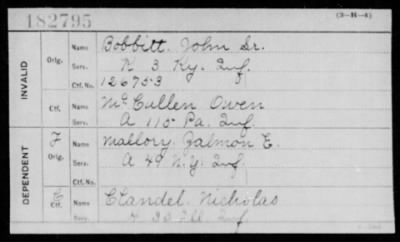 182795
(3-H-4)
INVALID
Orig. Name Bobbitt, John Sr.
Serv. K 3 Ky. Inf.
Ctf. No. 126753
Ctf. Name McCullen Owen
Serv. A 115 Pa. Inf.
DEPENDENT
F Orig. Name Mallory, Zalmon E.
Serv. A 49 N.Y. Inf.
Ctf. No.
Ctf. Name Clandel, Nicholas
Serv. 30 Ill. Inf.